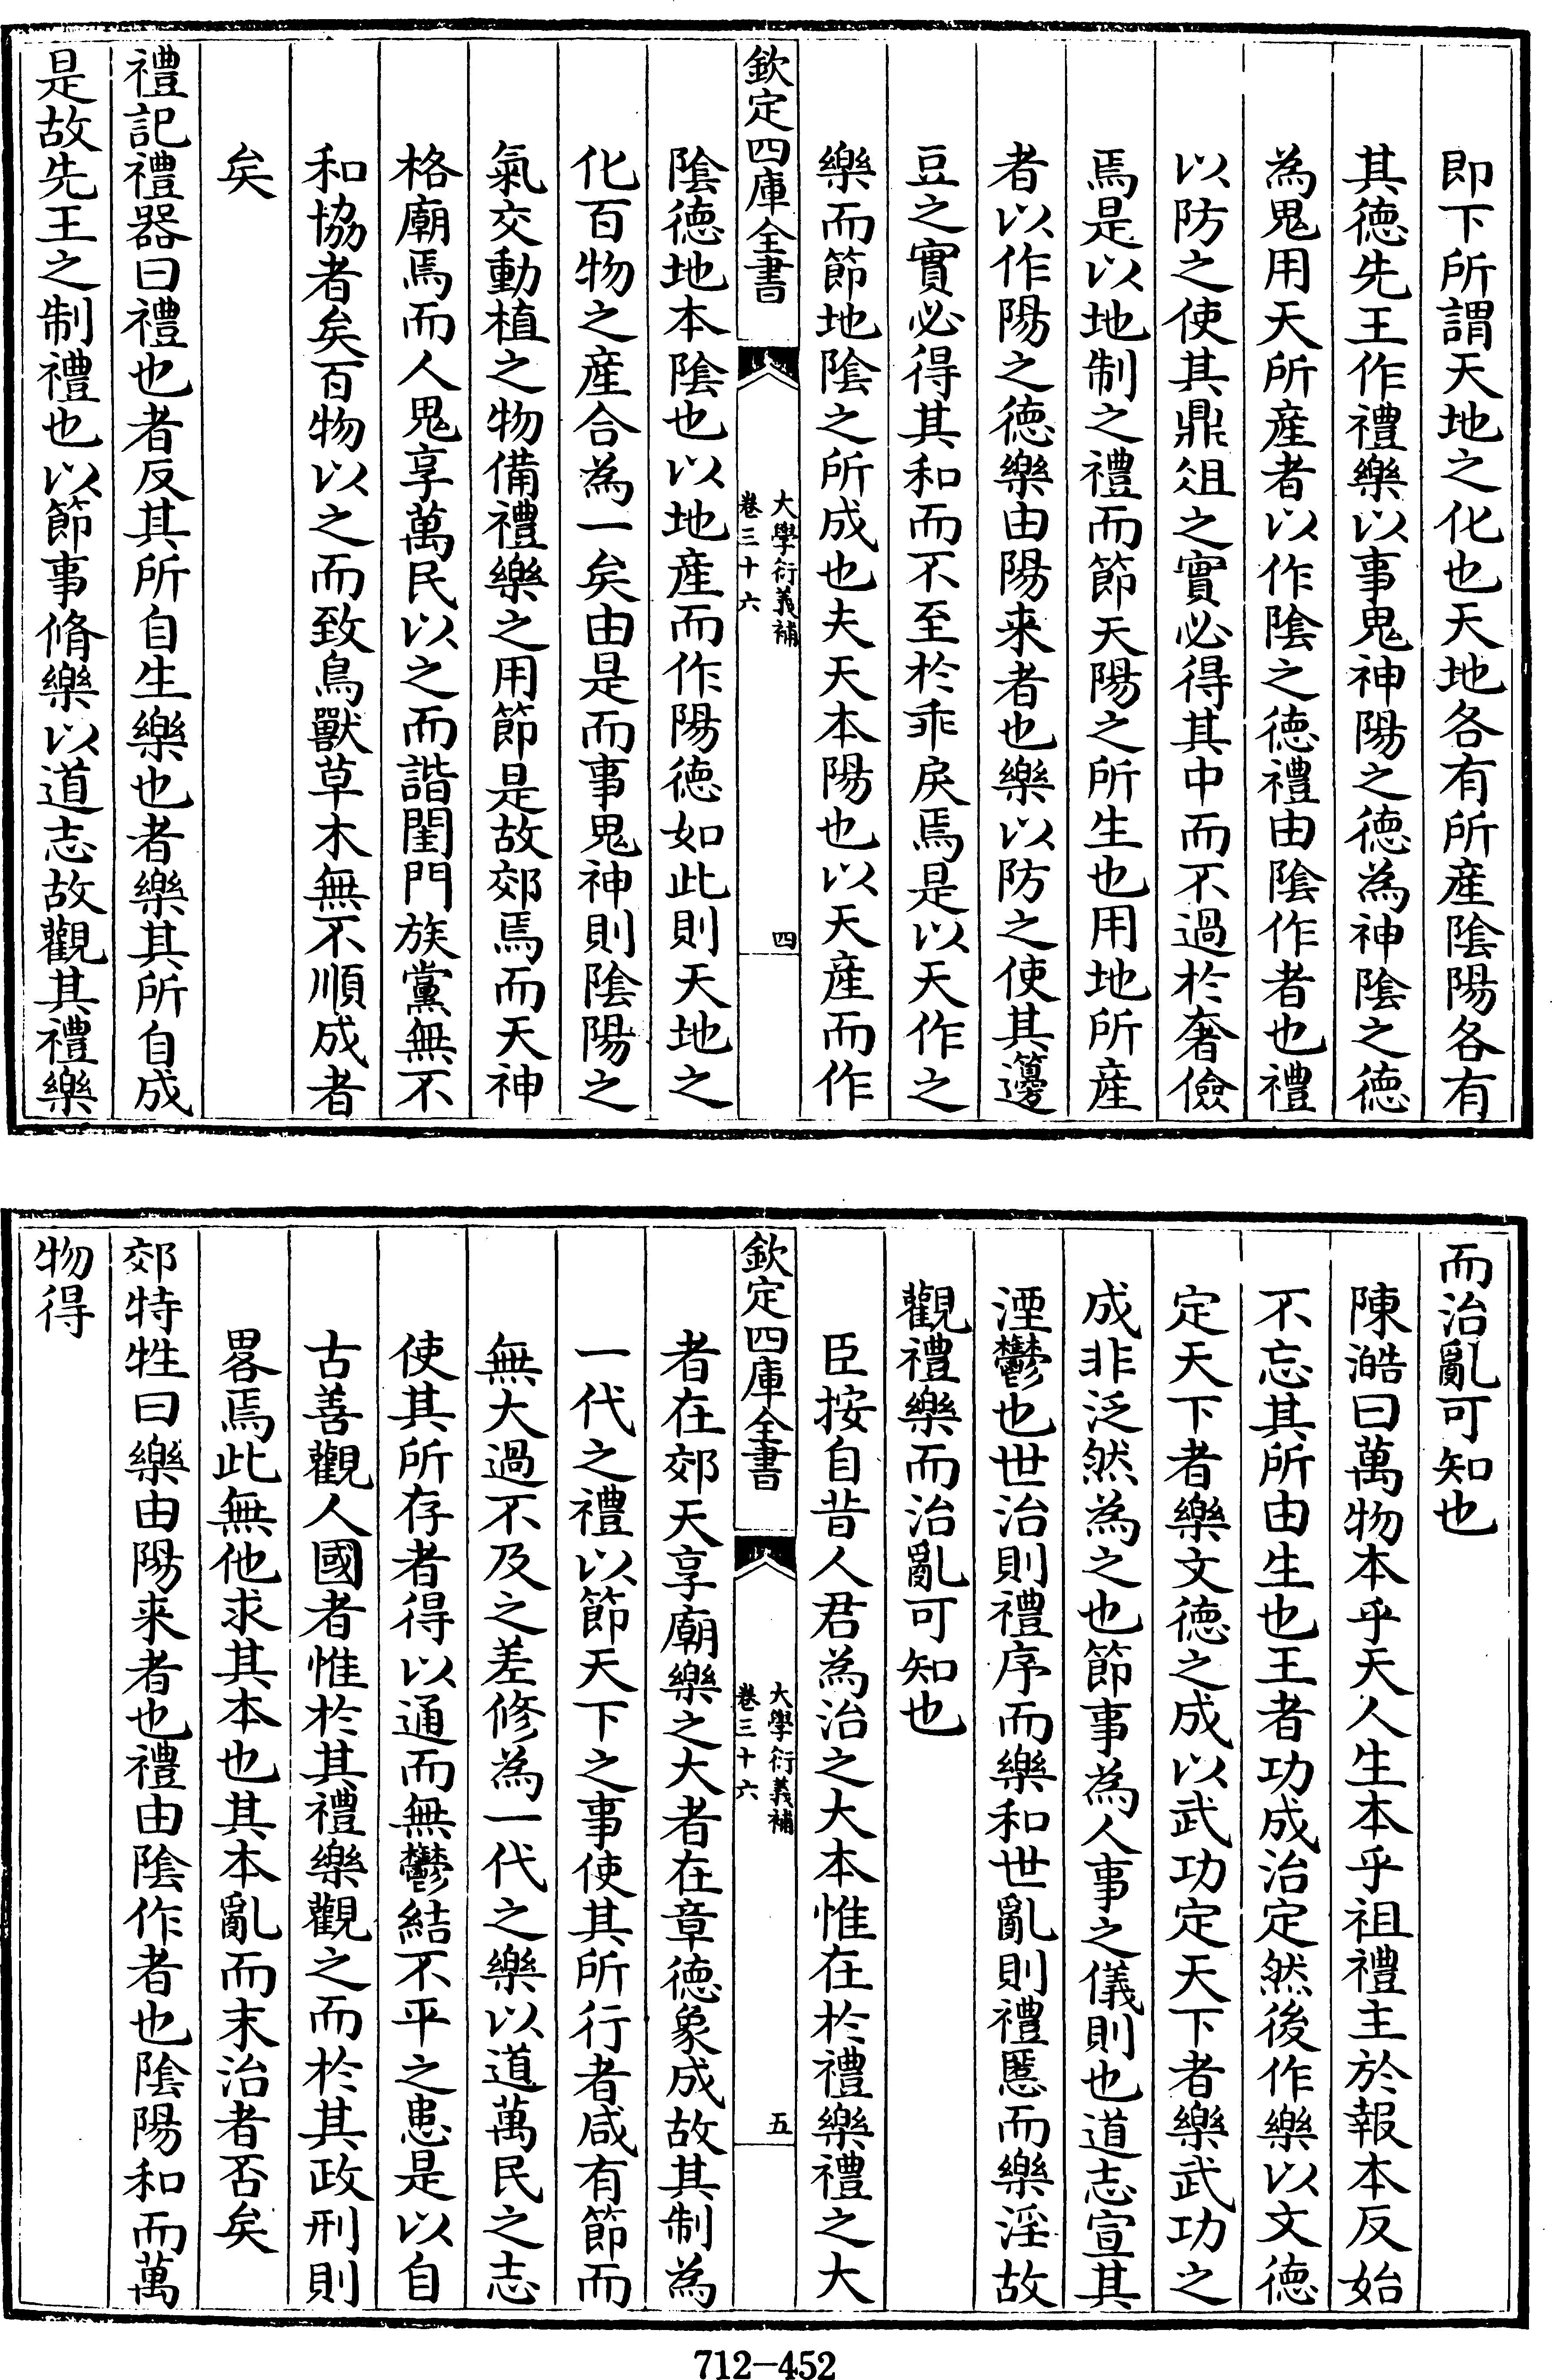 即下所謂天地之化也天地各有所產陰陽各有
其德先王作禮樂以事鬼神陽之德為神陰之德
為鬼用天所產者以作陰之德禮由陰作者也禮
以防之使其鼎俎之實必得其中而不過於奢儉
焉是以地制之禮而節天陽之所生也用地所產
者以作陽之德樂由陽来者也樂以防之使其籩
豆之實必得其和而不至於乖戾焉是以天作之
樂而節地陰之所成也夫天本陽也以天產而作
欽定四庫全書
大學衍義補
卷三十六
四
陰德地本陰也以地產而作陽德如此則天地之
化百物之產合為一矣由是而事鬼神則陰陽之
氣交動植之物備禮樂之用節是故郊焉而天神
格廟焉而人鬼享萬民以之而諧閨門族黨無不
和協者矣百物以之而致鳥獸草木無不順成者
矣
禮記禮器曰禮也者反其所自生樂也者樂其所自成
是故先王之制禮也以節事脩樂以道志故觀其禮樂
而治亂可知也
陳澔曰萬物本乎天人生本乎祖禮主於報本反始
不忘其所由生也王者功成治定然後作樂以文德
定天下者樂文德之成以武功定天下者樂武功之
成非泛然為之也節事為人事之儀則也道志宣其
湮鬱也世治則禮序而樂和世亂則禮慝而樂淫故
觀禮樂而治亂可知也
臣按自昔人君為治之大本惟在於禮樂禮之大
欽定四庫全書
大學衍義補
卷三十六
五
者在郊天享廟樂之大者在章德象成故其制為
一代之禮以節天下之事使其所行者咸有節而
無大過不及之差修為一代之樂以道萬民之志
使其所存者得以通而無鬱結不平之患是以自
古善觀人國者惟於其禮樂觀之而於其政刑則
畧焉此無他求其本也其本亂而末治者否矣
郊特牲曰樂由陽来者也禮由陰作者也陰陽和而萬
物得
712-452